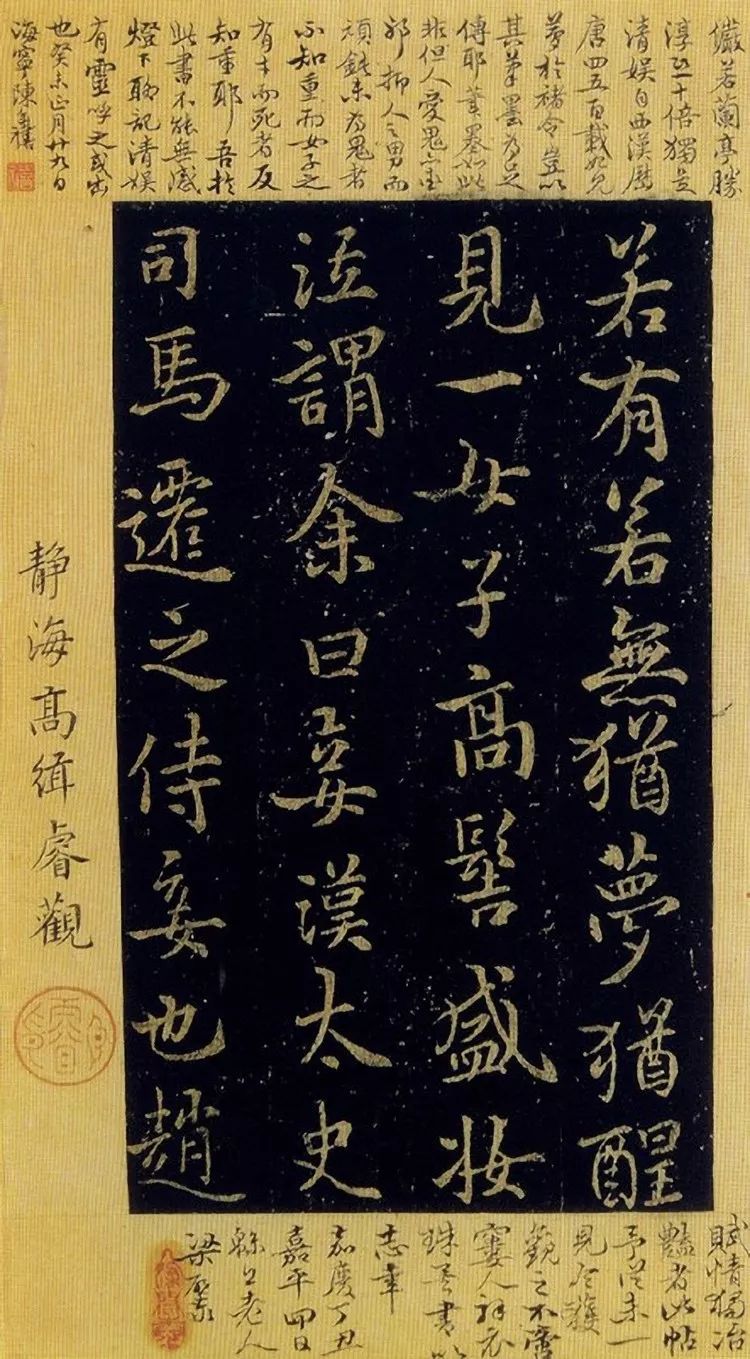 儼若蘭亭勝
淳十倍獨是
清娱自西漢歷
唐四五百載始見
夢於褚令豈以
其筆墨為足
傳耶筆墨如此
非但人愛鬼亦重
耶抑人之男而
頑鈍未為鬼者
不知重而女子之
有才而死者反
知重耶 吾於
此書不能無感
燈下聊記清娱
有靈呼之或出
也癸未正月廿九日
海寧陳奕禧
若有若無猶夢猶醒
見一女子高髻盛妝
泣謂余曰妾漢太史
司馬遷之侍妾也趙
靜海高緝睿觀
賦情獨冶
豔者此帖
予從未一
見今獲
觀之不啻
窶人衣
珠書以
志幸
嘉慶丁丑
嘉平四日
老人
梁